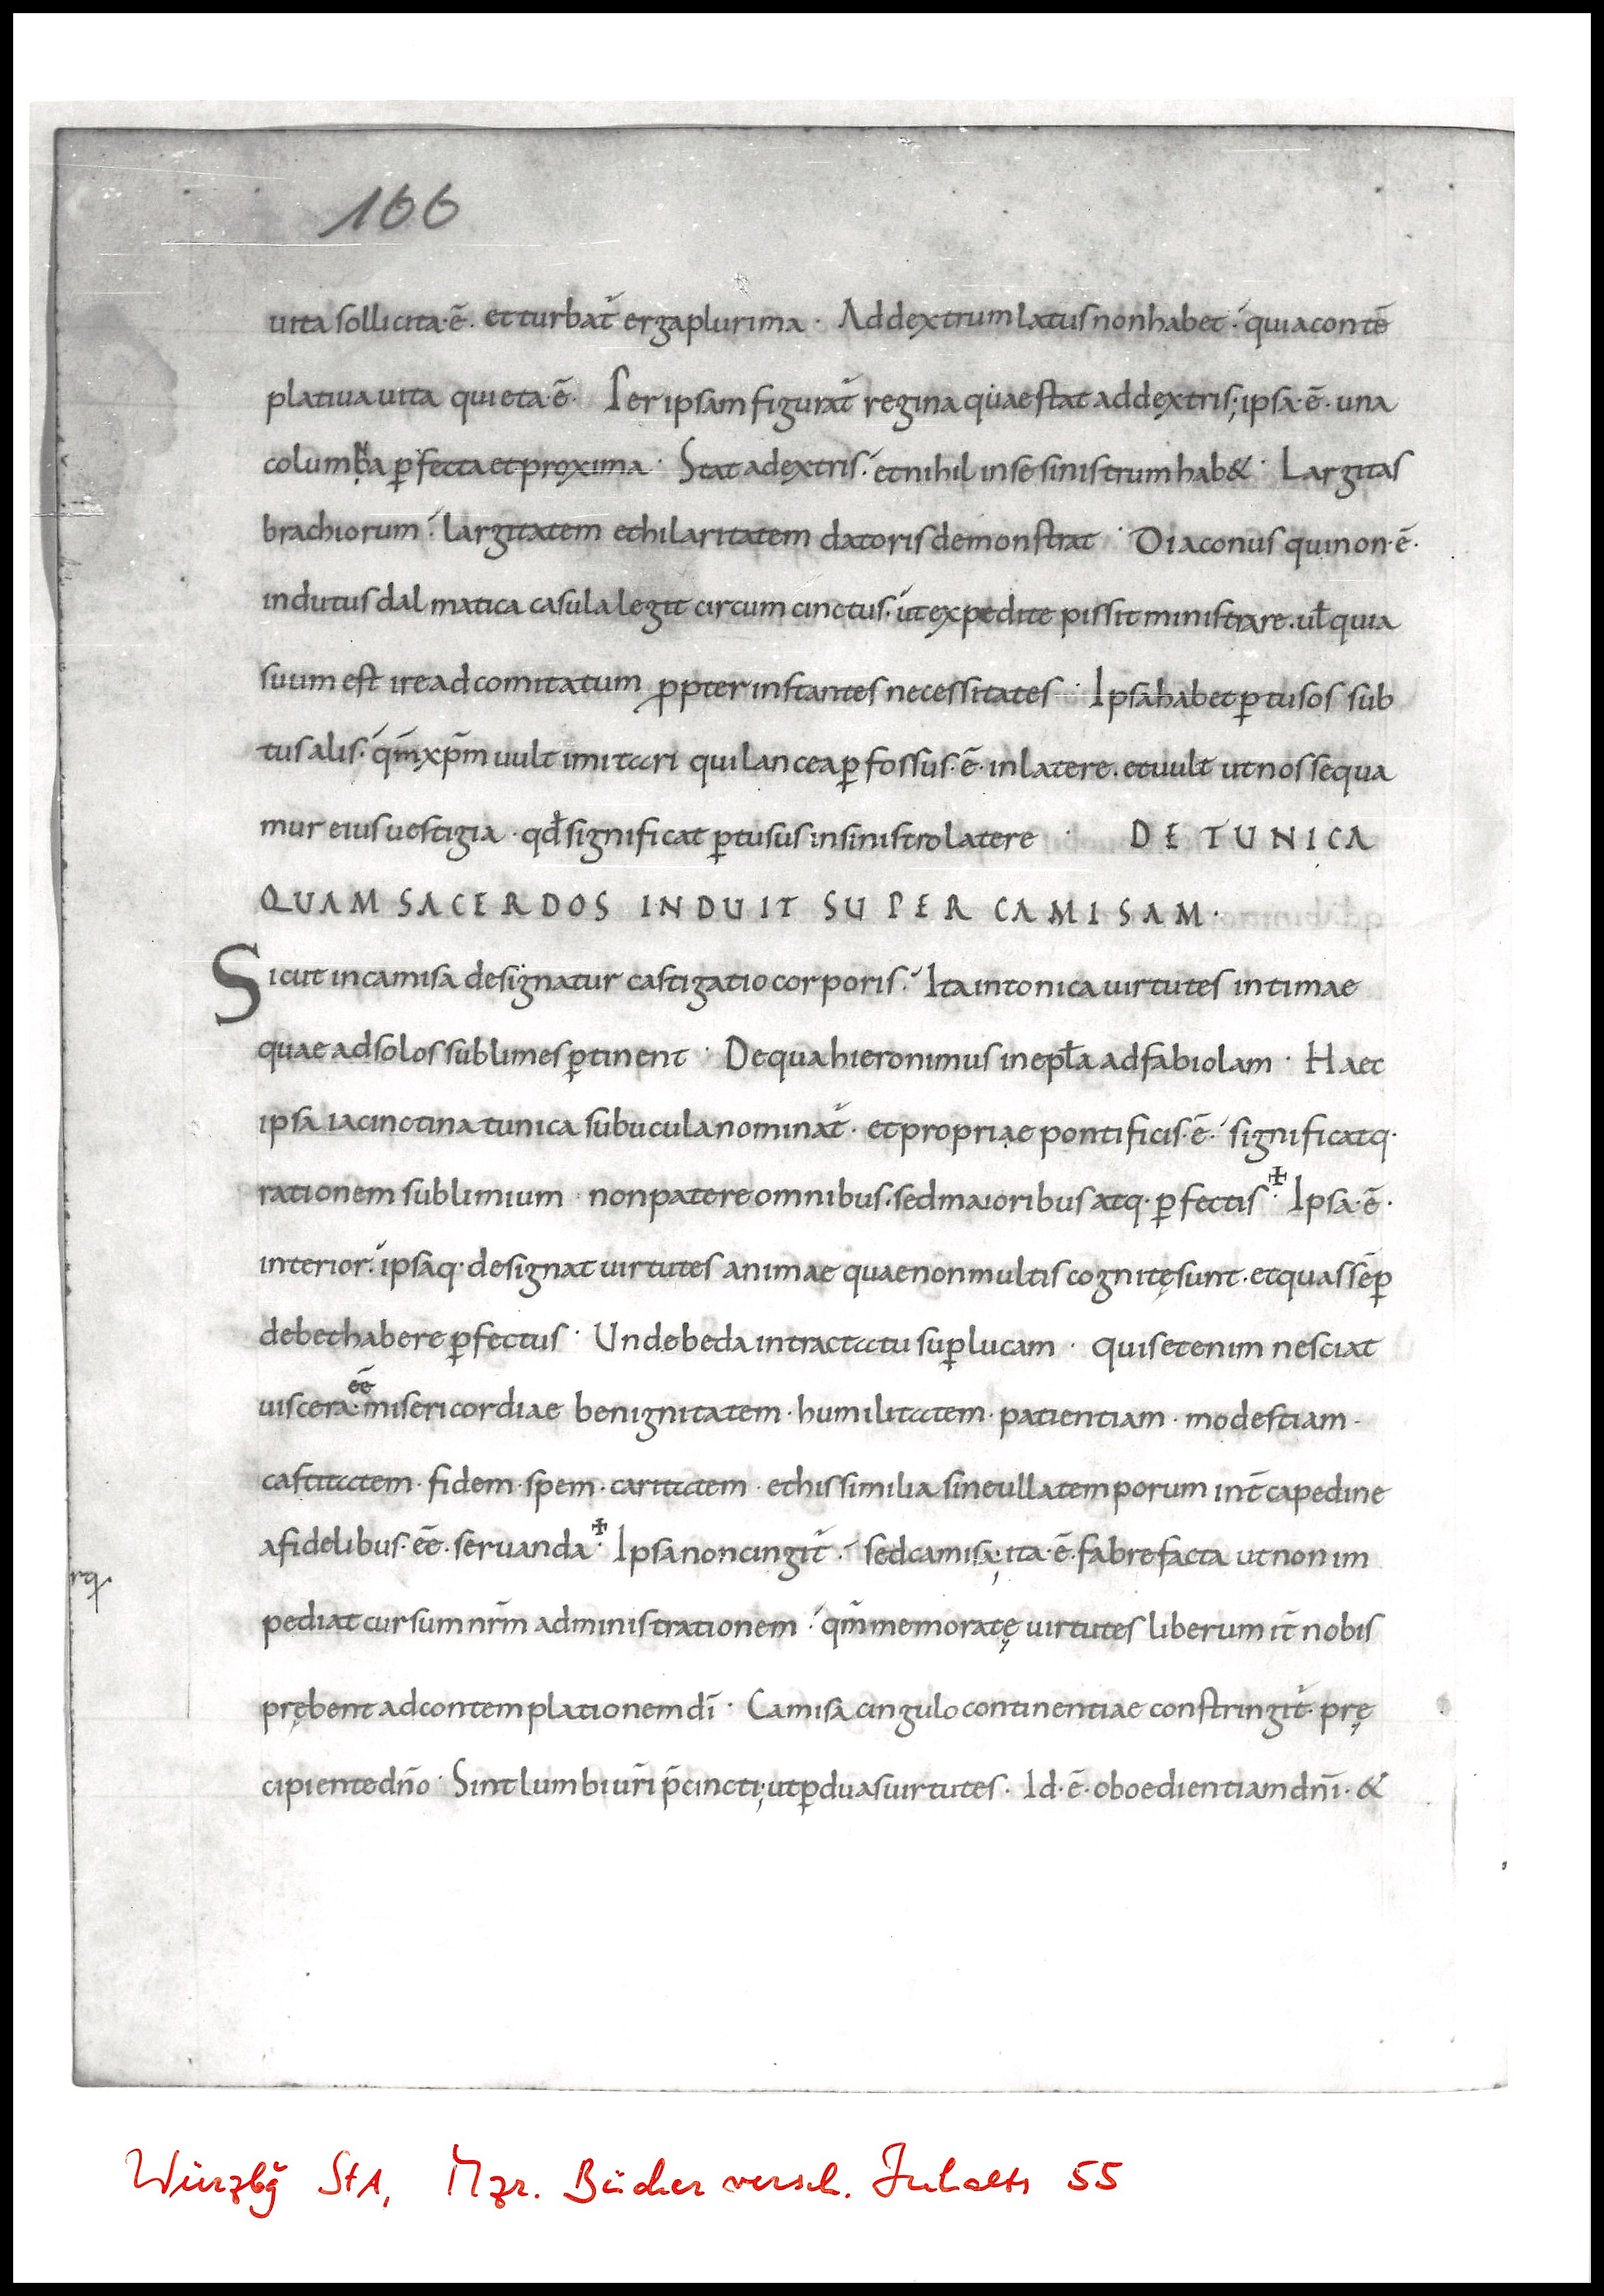 166
uita sollicita·ē. et turbat̄ erga plurima · Ad dextrum latus non habet · quia contē
platiua uita quieta·ē· Per ipsam figurat̄ regina quae stat ad dextris; ipsa·ē·una
columba ꝑfecta et proxima · Stat a dextris · et nihil in se sinistrum hab& · Largitas
brachiorum · largitatem et hilaritatem datoris demonstrat · Diaconus qui non·ē·
indutus dalmatica casula legit circumcinctus · ut expedite pissit ministrare . ul̄ quia
suum est ire ad comitatum ꝓpter instantes necessitates · Ipsa habet ꝑtusos sub
tus alis · qm̄ xp̄m uult imitari qui lancea ꝑfossus·ē·in latere . et uult ut nos sequa
mur eius uestigia · qđ significat ꝑtusus in sinistro latere · DE TUNICA
QUAM SACERDOS INDUIT SUPER CAMISAM·
Sicut in camisa designatur castigatio corporis · Ita in tonica uirtutes intimae
quae ad solos sublimes ꝑtinent · De qua hieronimus in epl̄a ad fabiolam · Haec
ipsa iacinctina tunica subucula nominat̄ · et propriae pontificis·ē· significatq·
rationem sublimium · non patere omnibus . sed maioribus atq· ꝑfectis · Ipsa·ē·
interior · ipsaq· designat uirtutes animae quae non multis cognitę sunt · et quas sēꝑ
debet habere ꝑfectus · Unde beda in tractatu suꝑ lucam · quis etenim nesciat
uiscera ēē misericordiae benignitatem · humilitatem · patientiam · modestiam ·
castitatem · fidem · spem · caritatem · et his similia sine ulla temporum int̄capedine
a fidelibus·ēē·seruanda · Ipsa non cingit̄ · sed camisa; ita·ē·fabrefacta ut non im
rq·
pediat cursum nr̄m administrationem · qm̄ memoratę uirtutes liberum it̄ nobis
prębent ad contemplationem dī · Camisa cingulo continentiae constringit̄ · prę
cipiente dn̄o · Sint lumbi ur̄i p̄cincti; ut ꝑ duas uirtutes · Id·ē·oboedientiam dn̄i · &
Würzbg StA, Mzr. Bücher versch. Inhalts 55